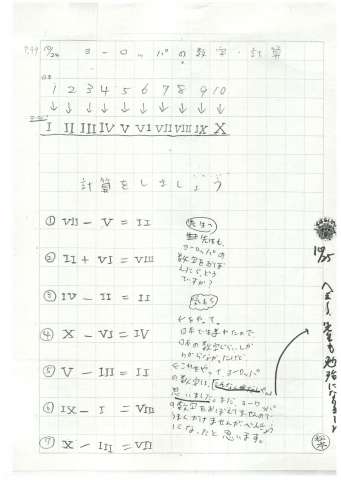 10/24 ヨーロッパの数字・計算
日本
1 2 3 4 5 6 7 8 9 10
↓ ↓ ↓ ↓ ↓ ↓ ↓ ↓ ↓ ↓
I II III IV V VI VII VIII IX X
計算をしましょう
① VII − V = II
② II + VI = VIII
③ IV − II = II
④ X − VI = IV
⑤ V − III = II
⑥ IX − I = VIII
⑦ X − III = VII
先生も、
ヨーロッパの
数字をおぼ
ですか?
をやって。
日本で生まれたので
日本の数字ぐらいしか
わからなかったけど
これをやってヨーロッパ
の数字は、
思いました。まだヨーロッパ
の数字をおぼえきれませんので
うまくかけませんがべんきょう
になったと思います。
10/25
へぇ〜、先生も勉強になりまーす